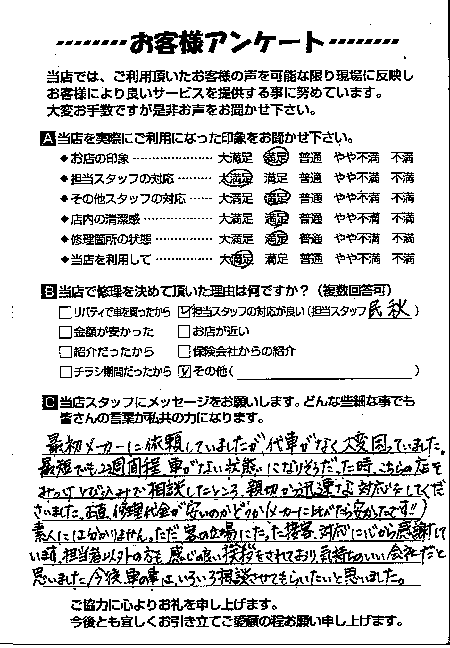 お客様アンケート
当店では、ご利用頂いたお客様の声を可能な限り現場に反映し
お客様により良いサービスを提供する事に努めています。
大変お手数ですが是非お声をお聞かせ下さい。
A 当店を実際にご利用になった印象をお聞かせ下さい。
◆お店の印象 ……………… 大満足 満足 普通 やや不満 不満
◆担当スタッフの対応 ……… 大満足 満足 普通 やや不満 不満
◆その他スタッフの対応 …… 大満足 満足 普通 やや不満 不満
◆店内の清潔感 …………… 大満足 満足 普通 やや不満 不満
◆修理箇所の状態 ………… 大満足 満足 普通 やや不満 不満
◆当店を利用して ………… 大満足 満足 普通 やや不満 不満
B 当店で修理を決めて頂いた理由は何ですか?(複数回答可)
□リバティで車を買ったから ☑担当スタッフの対応が良い(担当スタッフ 民秋 )
□金額が安かった □お店が近い
□紹介だったから □保険会社からの紹介
□チラシ期間だったから ☑その他( )
C 当店スタッフにメッセージをお願いします。どんな些細な事でも
皆さんの言葉が私共の力になります。
最初メーカーに依頼していましたが、代車がなく大変困っていました。
最短でも2週間程車がない状態になりそうだった時、こちらの店を
みつけとび込みで相談したところ、親切かつ迅速な対応をしてくだ
さいました。正直、修理代金が安いのかどうか(メーカーに比べたら安かったです!!)
素人には分かりません。ただ客の立場にたった接客、対応に心から感謝して
います。担当者以外の方も感じの良い挨拶をされており、気持ちのいい会社だと
思いました。今後車の事は、いろいろ相談させてもらいたいと思いました。
ご協力に心よりお礼を申し上げます。
今後とも宜しくお引き立てご愛顧の程お願い申し上げます。